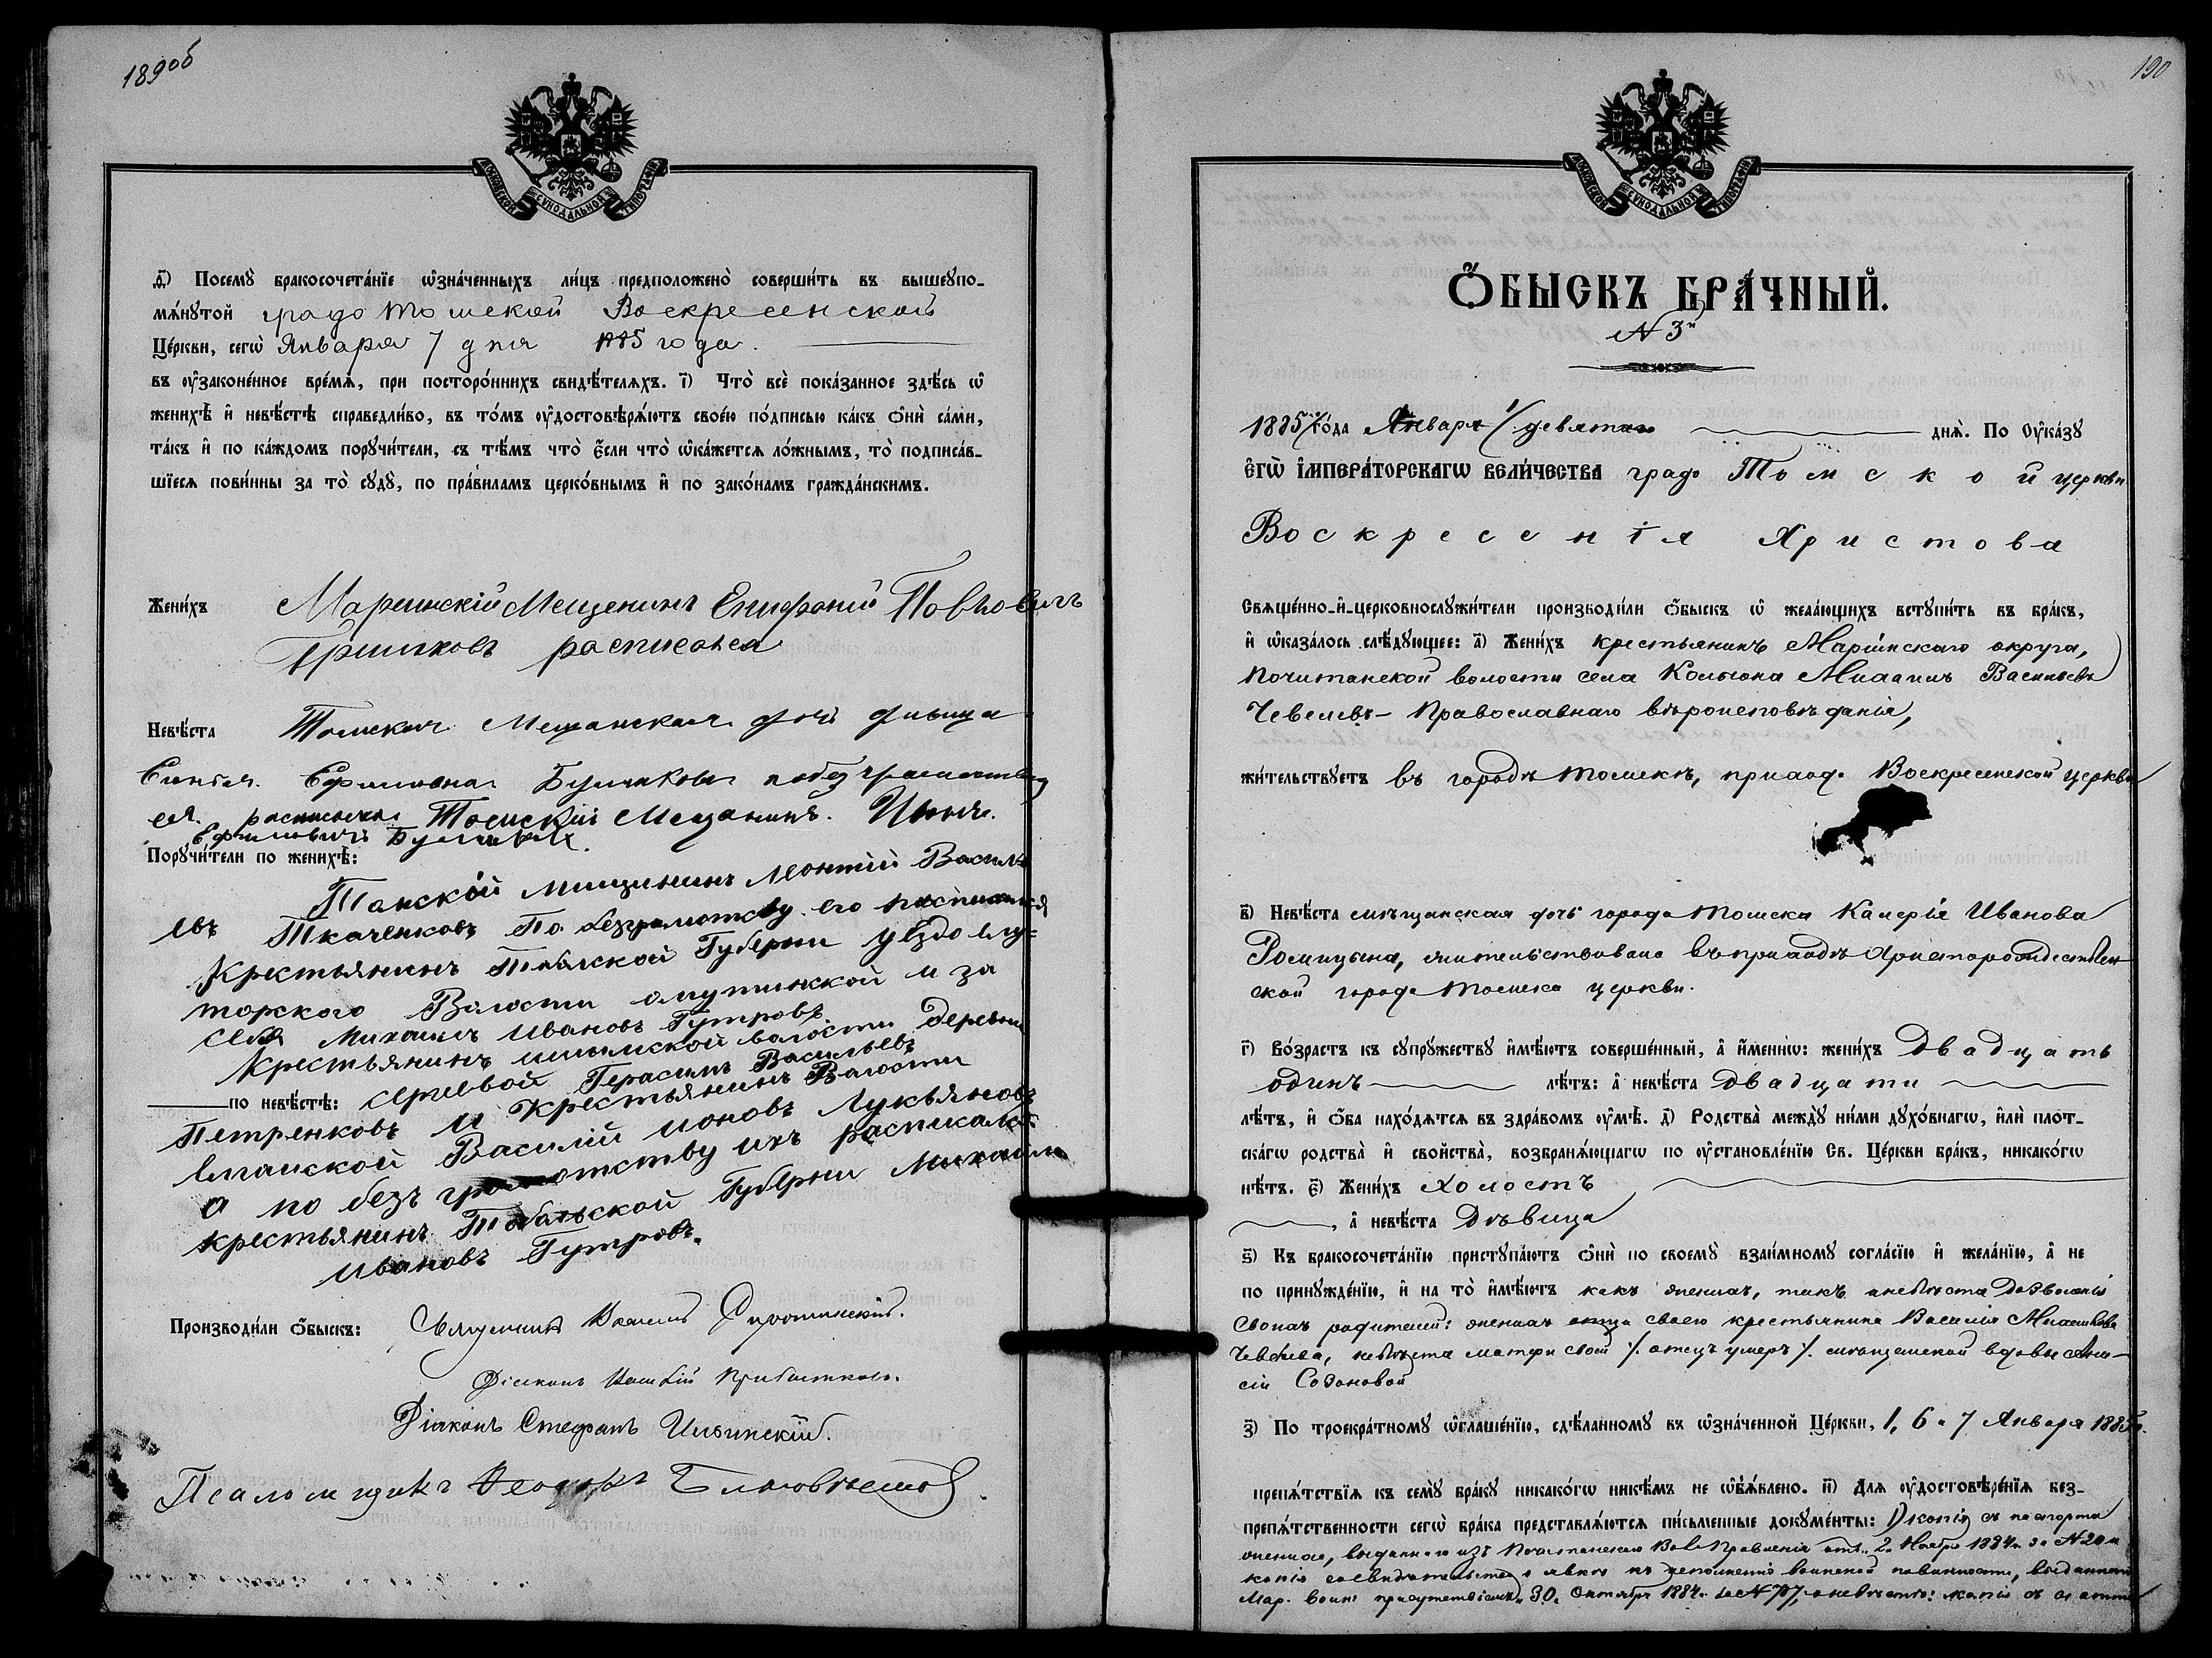 189об
МОСКОВСКОЙ СѴНОДАЛЬНОЙ ТИПОГРАФІИ
д҃) Посемꙋ̀ бракосочета́нїе ѡ҆зна́ченныхъ ли́цъ предположено̀ соверши́ть въ вышеꙋпо-
мѧ́нꙋтой градо Томской Воскресенской
Це́ркви, сегѡ̀ Января 7 дня 1885 года.
въ оу҆законе́нное вре́мѧ, при посторо́ннихъ свидѣ́телѧхъ. і҃) Что̀ всѐ пока́занное здѣ́сь ѡ҆
женихѣ̀ и҆ невѣ́стѣ справедли́во, въ то́мъ оу҆достовѣрѧ́ютъ своє́ю по́дписью ка́къ ѻ҆нѝ са́ми,
та́къ и҆ по ка́ждомъ порꙋчи́тели, съ тѣ́мъ что̀ є҆́сли что̀ ѡ҆ка́жетсѧ ло́жнымъ, то̀ подписа́в-
шїесѧ пови́нны за то̀ сꙋдꙋ̀, по пра́виламъ церко́внымъ и҆ по зако́намъ гражда́нскимъ.
Жени́хъ Маріинскій Мещенинъ Епифаній Павловичъ
Гришковъ росписался
Невѣ́ста Томская Мещанская дочь дѣвица
Ефимовна Булакова
ея росписался Томскій Мещанинъ.
Ефимовичъ
Порꙋчи́тели по женихѣ̀:
Томскій мищининъ Леонтій Василь
евъ Ткаченковъ По безграмотству его росписался
Крестьянинъ Табльской Губерни уездо елу=
торского Валости омутинской и за
себя Михаилъ Ивановъ Гутровъ
Крестьянинъ ишимской валости деревни
Герасимъ Васильевъ
по невѣ́стѣ:
Петренковъ и Крестьянинъ Валости
елганской Василій ионовъ Лукьяновъ
а по безъ грамотству ихъ расписался
крестьянинъ Табальской Губерни Михаилъ
Ивановъ Гутровъ.
Производи́ли ѻ҆́быскъ: Священникъ Василій Сиротинскій.
Діаконъ
Діаконъ Стефанъ Ильинскій.
Псаломщикъ Ѳеодоръ
190
МОСКОВСКОЙ СѴНОДАЛЬНОЙ ТИПОГРАФІИ
Ѻ҆́БЫСКЪ БРА́ЧНЫЙ.
№ 3й
1885/го́да Января / девятаго днѧ̀. По Оу҆ка́зꙋ
є҆гѡ̀ і҆мпера́торскагѡ вели́чества градо Томской церкви
Воскресенія Христова
Свѧще́нно-и҆-церковнослꙋжи́тели производи́ли ѻ҆́быскъ ѡ҆ жела́ющихъ встꙋпи́ть въ бра́къ,
и҆ ѡ҆каза́лось слѣ́дꙋющее: а҃) Жени́хъ крестьянинъ Маріинскаго округа,
Почитанской волости села Колыона Михаилъ Васильевъ
Чевелевъ – Православнаго вѣроисповѣданія,
жи́тельствꙋетъ въ городѣ Томскѣ, приходѣ Воскресенской церкви
в҃) Невѣ́ста мѣщанская дочь города Томска Калерія Иванова
Ромицына, жительствовала въ приходѣ Христорождествен
ской города Томска церкви.
г҃) Во́зрастъ къ сꙋпрꙋ́жествꙋ и҆мѣ́ютъ соверше́нный, а҆ и҆́меннѡ: жени́хъ двадцать
одинъ лѣ́тъ: а҆ невѣ́ста двадцати
лѣ́тъ, и҆ ѻ҆́ба нахо́дѧтсѧ въ здра́вомъ оу҆мѣ̀. д҃) Родства̀ междꙋ̀ ни́ми дꙋхо́внагѡ, и҆лѝ плот-
ска́гѡ родства̀ и҆ свойства̀, возбранѧ́ющагѡ по оу҆становле́нїю Св. Це́ркви бра́къ, никако́гѡ
нѣ́тъ. є҃) Жени́хъ холостъ
, а҆ невѣ́ста дѣвица
ѕ҃) Къ бракосочета́нїю пристꙋпа́ютъ ѻ҆нѝ по своемꙋ̀ взаи́мномꙋ согла́сїю и҆ жела́нїю, а҆ не
по принꙋжде́нїю, и҆ на то̀ и҆мѣ́ютъ какъ женихъ, такъ и невѣста дозволеніе
своихъ родителей: женихъ отца своего крестьянина Василія Михайлова
Чевелева, невѣста матери своей /. отецъ умеръ /. мѣщанской вдовы Ани-
сіи Созоновой
з҃) По троекра́тномꙋ ѡ҆глаше́нїю, сдѣ́ланномꙋ въ ѡ҆зна́ченной Це́ркви, 1, 6 и 7 Января 1885г.
препѧ́тствїѧ къ семꙋ̀ бра́кꙋ никако́гѡ никѣ́мъ не ѡ҆б̾ѧ́влено. и҃) Длѧ оу҆достовѣре́нїѧ без-
препѧ́тственности сегѡ̀ бра́ка представлѧ́ютсѧ пи́сьменные докꙋме́нты: 1) копія съ паспорта
жениха, выданнаго изъ Почитанскаго Вол. Правленія отъ 2. Ноября 1884г. за № 20
копія свидѣтельства о явкѣ къ исполненію воинской повинности, выданнаго
Мар. воинс присутствіемъ 30. Октября 1884г. за № 717, о невѣстѣ: копія съ